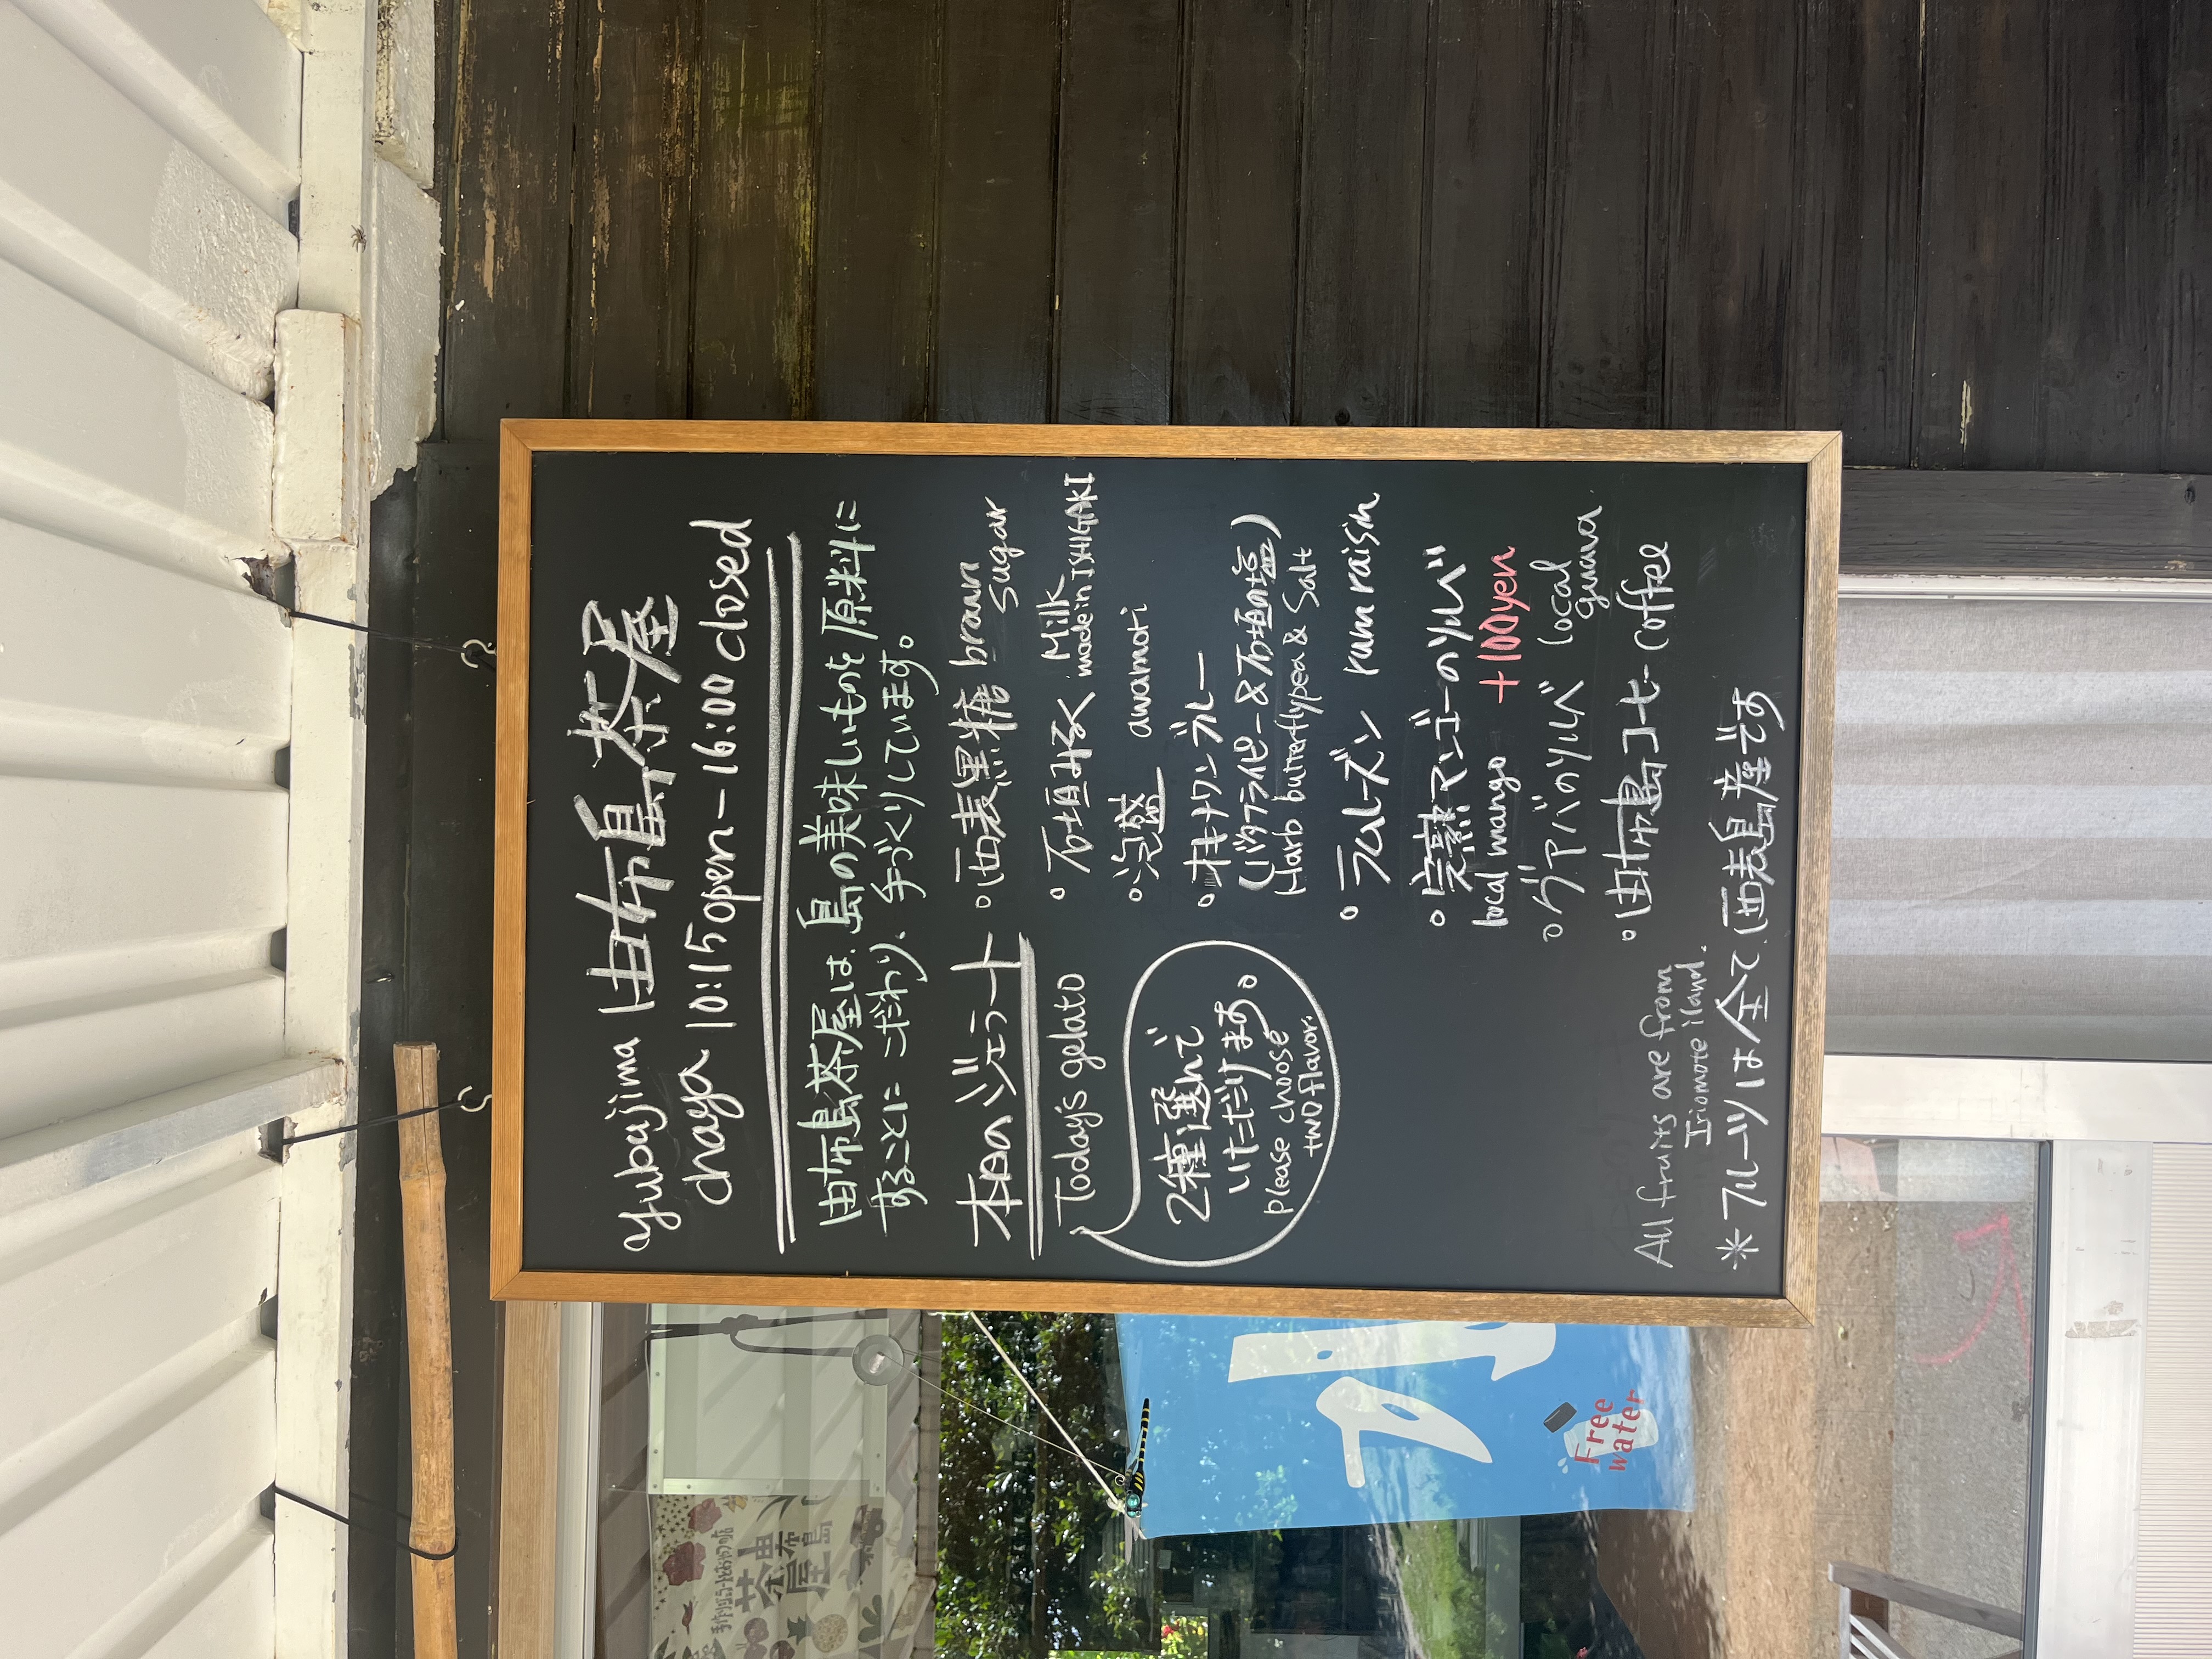 yubujima 由布島茶屋
chaya 10:15open-16:00 closed
由布島茶屋は、島の美味しいものを原料に
することに こだわり、手づくりしています。
本日のジェラート
Today's gelato
2種選んで
いただけます。
please choose
two flavor.
○西表黒糖 brown
sugar
○石垣みるく Milk
made in ISHIGAKI
○泡盛 awamori
○オキナワンブルー
(バタフライピー&石垣の塩)
Harb butterflypea & Salt
○ラムレーズン rum raisin
○完熟マンゴーのソルベ
local mango +100yen
○グアバのソルベ local
guava
○由布島コーヒー coffee
All fruits are from
Iriomote iland.
*フルーツは全て、西表島産です
茶 由
屋 布
島
Free
water